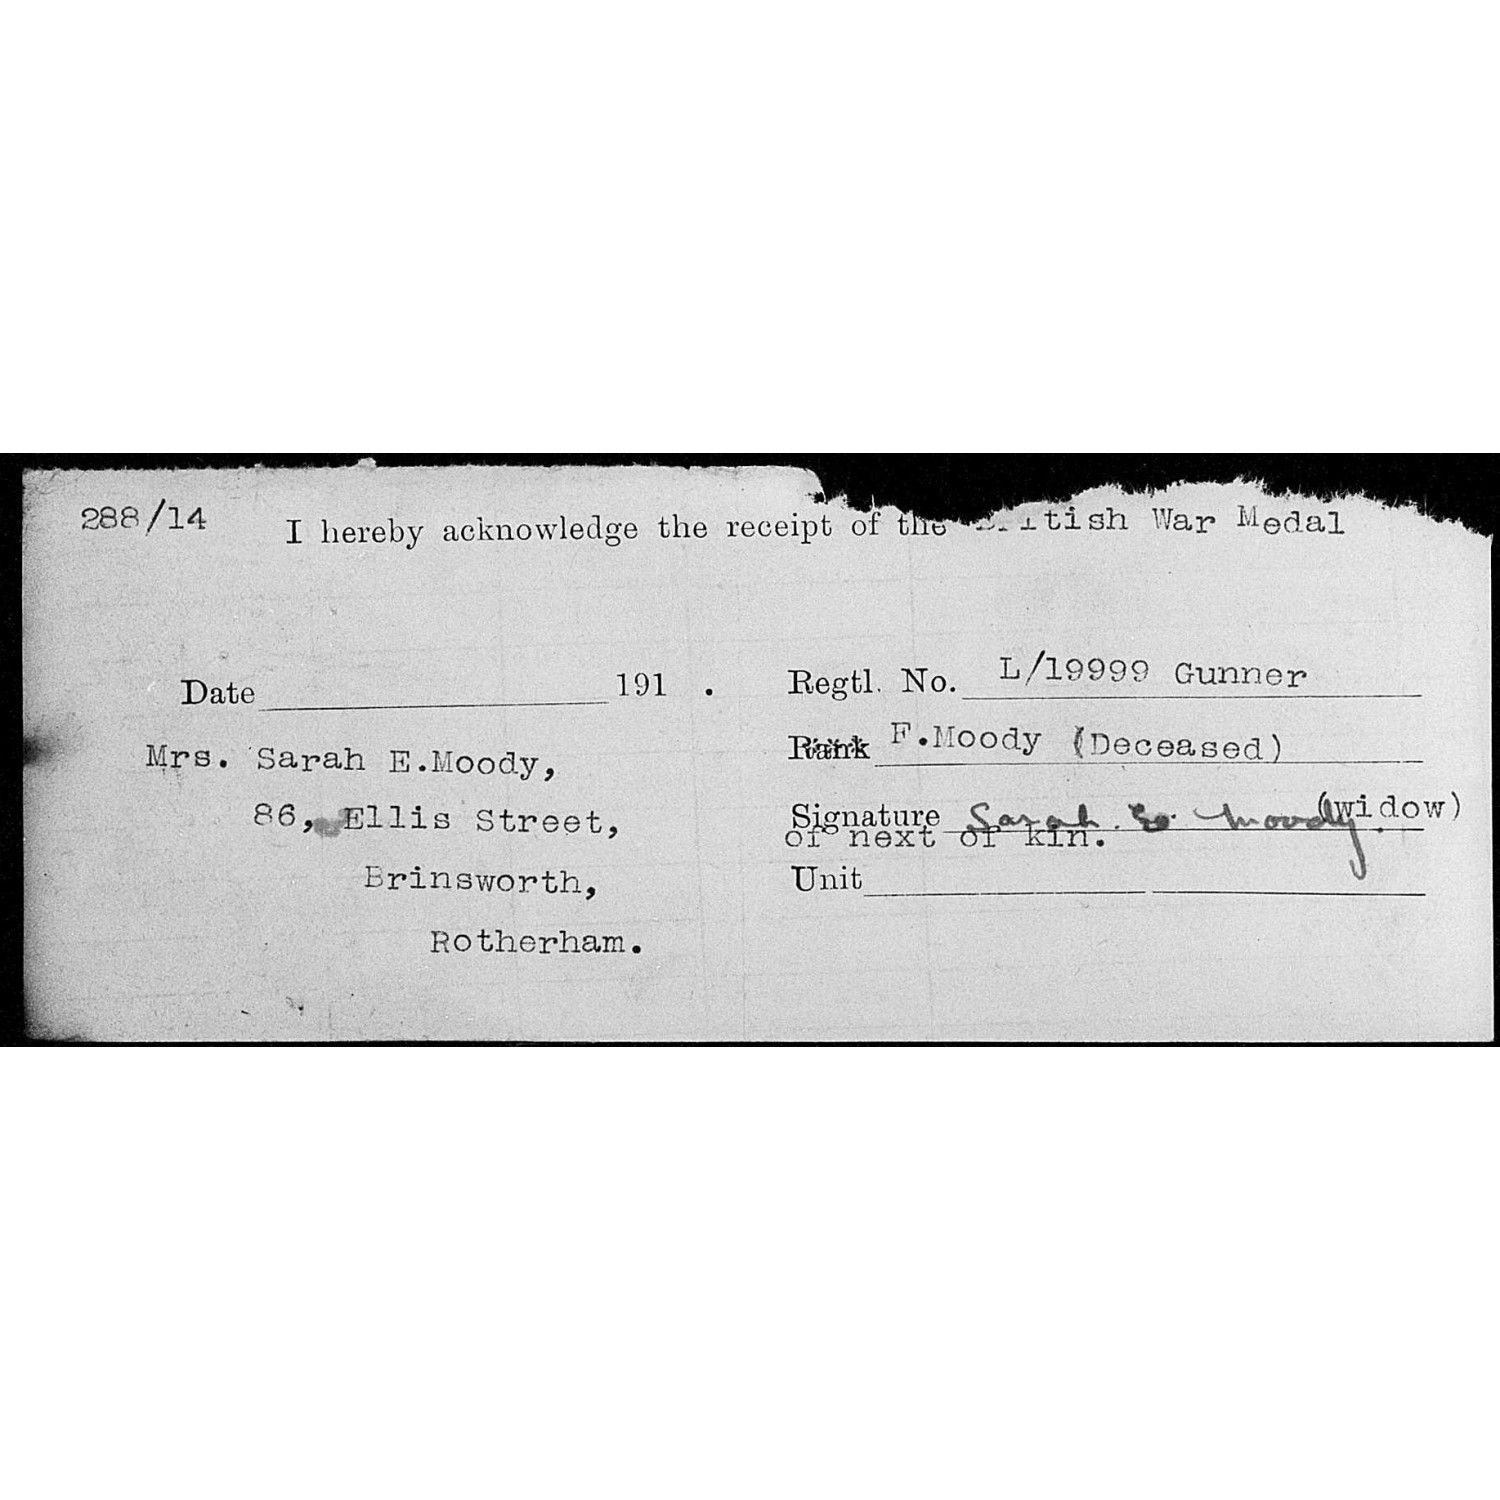 288/14 I hereby acknowledge the receipt of the British War Medal
Date 191 .
Mrs. Sarah E.Moody,
86, Ellis Street,
Brinsworth,
Rotherham.
Regtl. No. L/19999 Gunner
Rank F.Moody (Deceased)
Signature Sarah. E. Moody. (widow)
of next of kin.
Unit